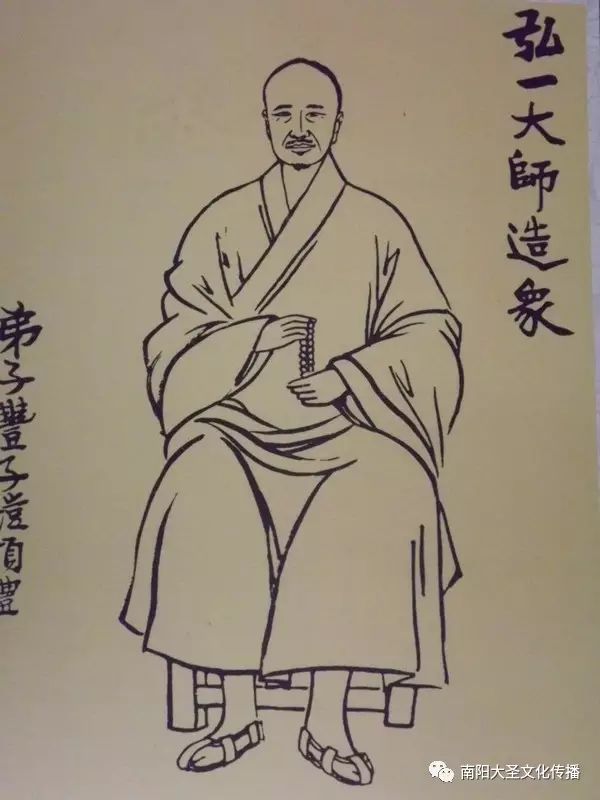 弘一大師造象
弟子豐子愷頂禮
南阳大圣文化传播